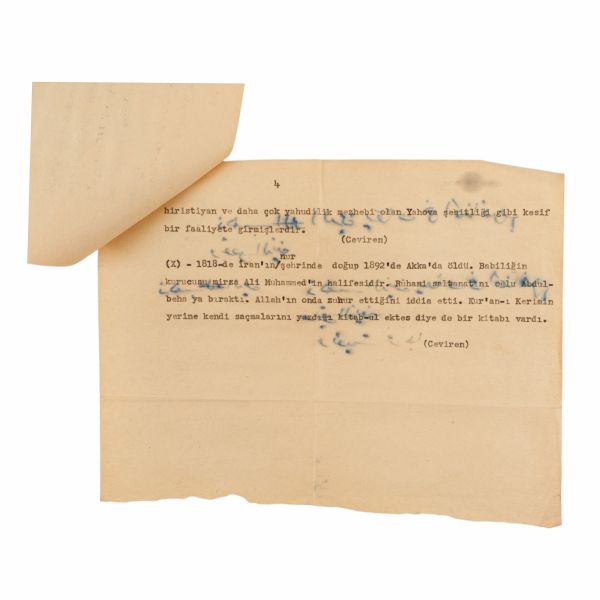 4
hiristiyan ve daha çok yahudilik mezhebi olan Yahova şehitliği gibi kesif
bir faaliyete girmişlerdir.
(Ceviren)
nur
(X) - 1818-de İran'ın/şehrinde doğup 1892'de Akka'da öldü. Babiliğin
kurucusu/mirza Ali Muhammed'in halifesidir. Rûhani saltanatını oğlu Abdul-
beha ya bıraktı. Allah'ın onda zuhur ettiğini iddia etti. Kur'an-ı Kerimin
yerine kendi saçmalarını yazdığı kitab-ul ektes diye de bir kitabı vardı.
(Ceviren)